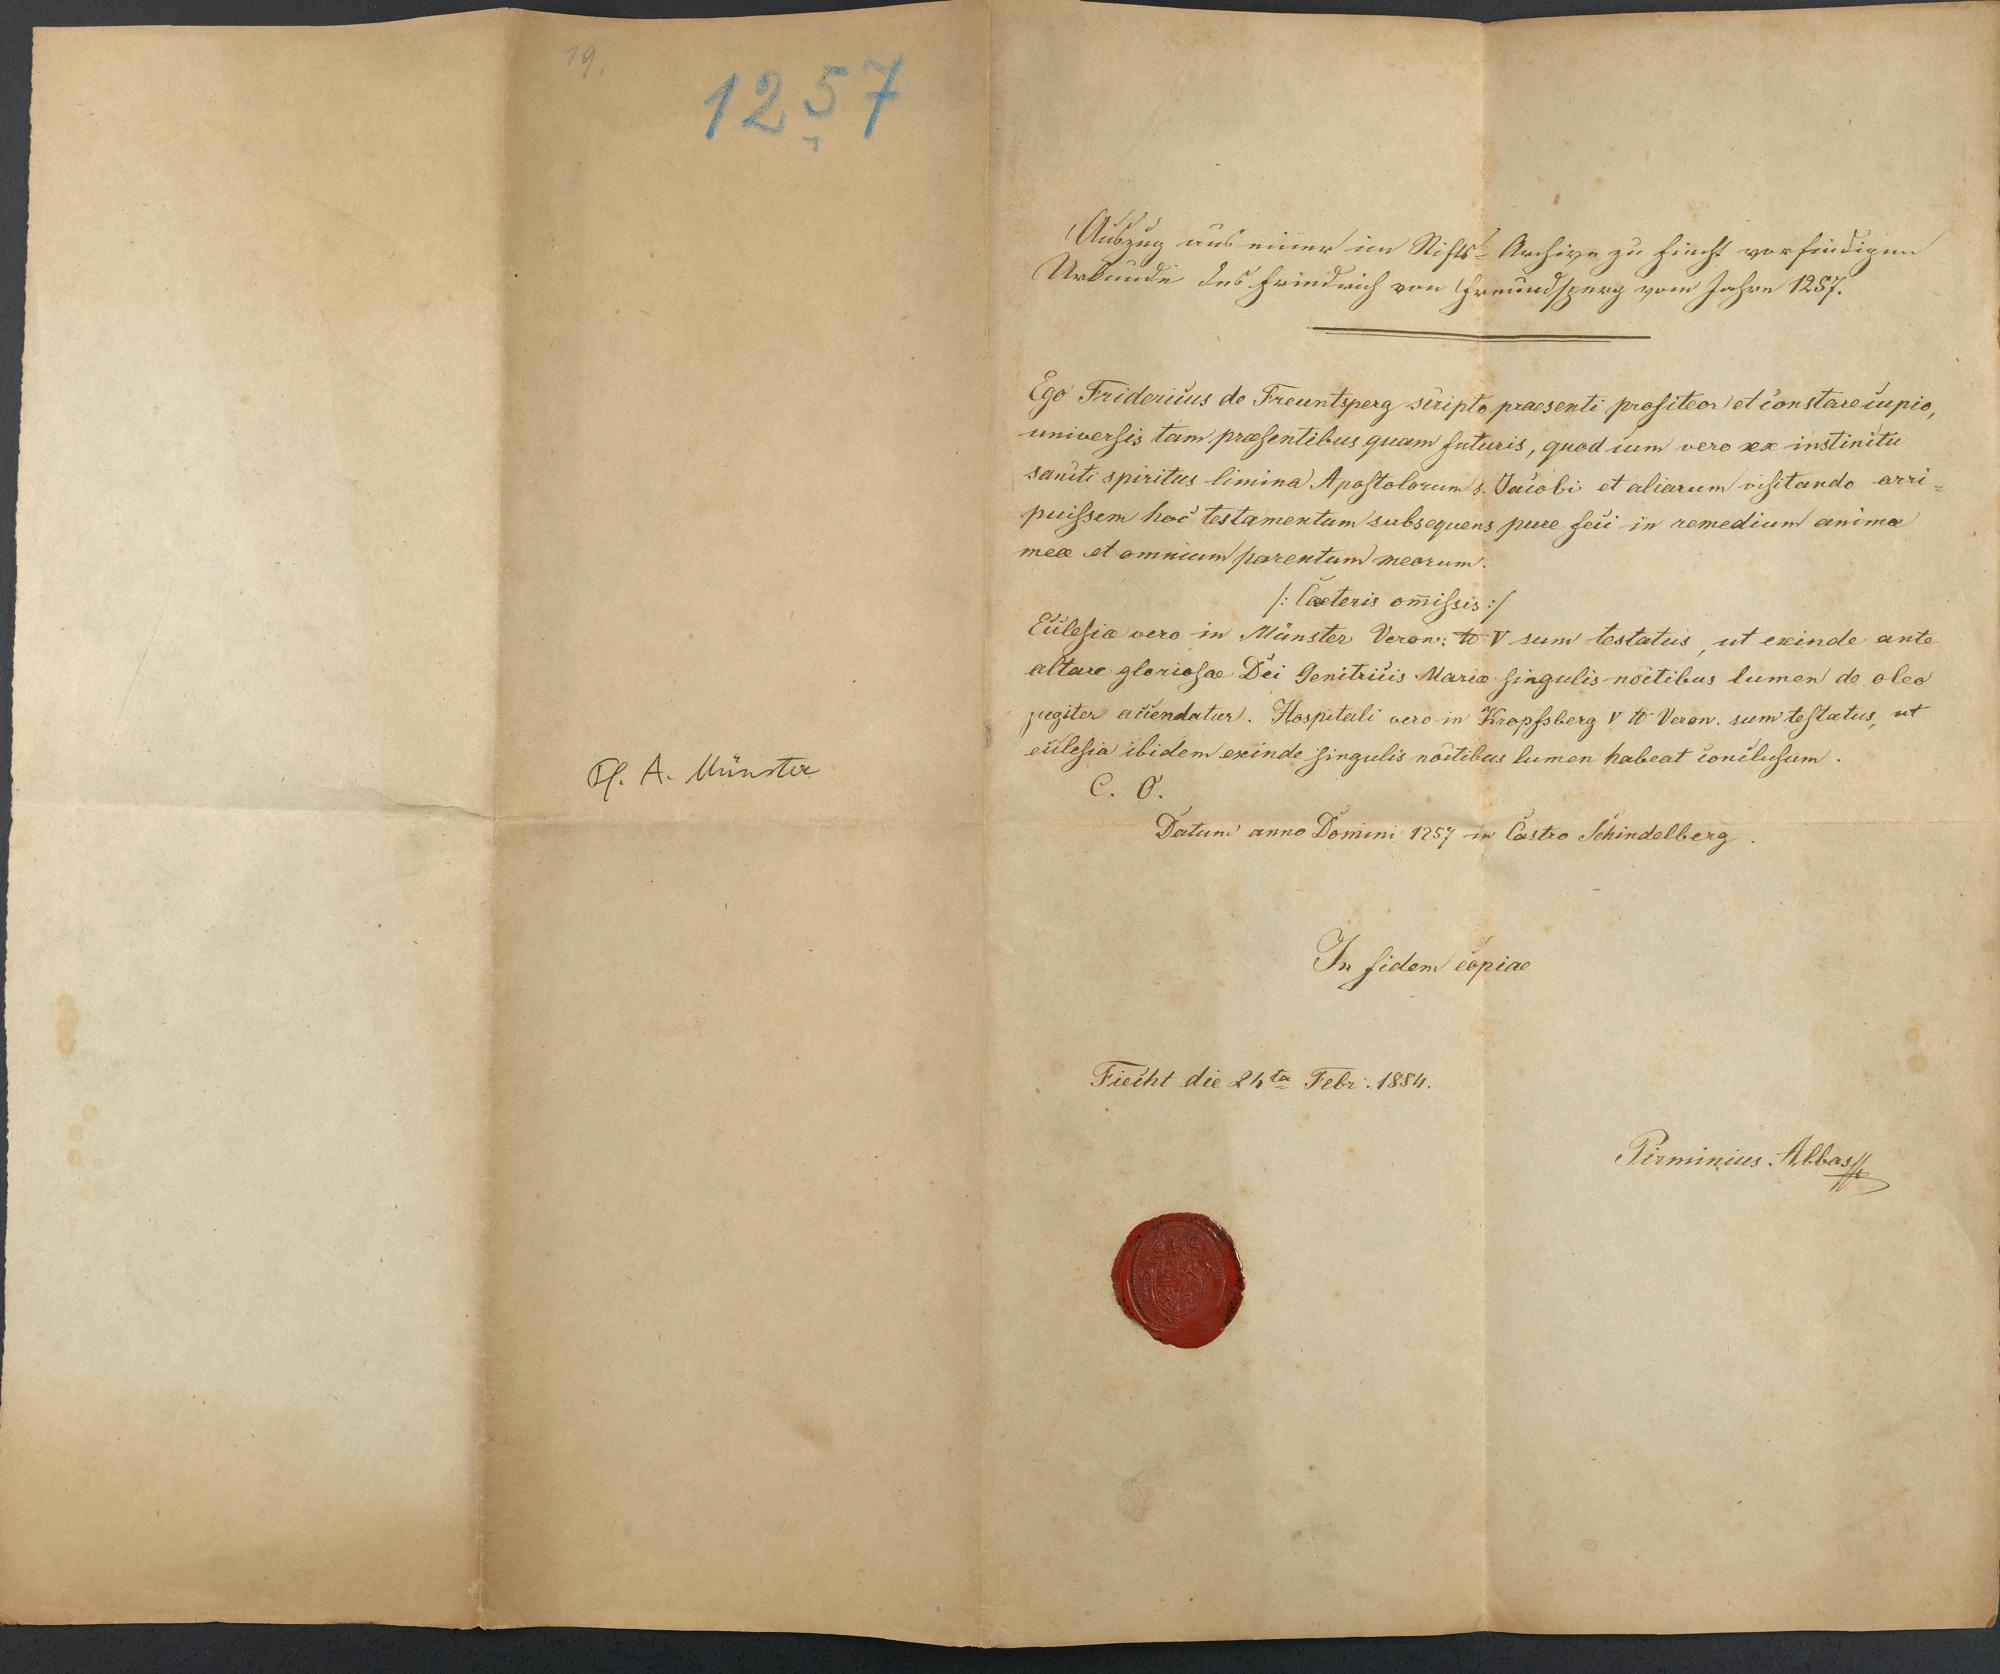 19.
1257
Pf. A. Münster
Auszug aus einer im Stifts-Archive zu Fiecht vorfindigen
Urkunde des Friedrich von Freundsperg vom Jahre 1257.
Ego Fridericus de Freuntsperg scripto praesenti profiteor et constare cupio,
universis tam præsentibus quam futuris, quod cum vero ex instinctu
sancti spiritus limina Apostolorum s. Jacobi et aliarum visitando arri=
puissem hoc testamentum subsequens pure feci in remedium animæ
meæ et omnium parentum meorum.
/: Caeteris om̅issis :/
Ecclesiæ vero in Münster Veron: ℔ V sum testatus, ut exinde ante
altare gloriosae Dei Genitricis Mariæ singulis noctibus lumen de oleo
jugiter accendatur. Hospitali vero in Kropfsberg V ℔ Veron. sum testatus, ut
ecclesia ibidem exinde singulis noctibus lumen habeat conclusum.
C. O.
Datum anno Domini 1257 in Castro Schindelberg.
In fidem copiae
Fiecht die 24ta Febr. 1884.
Pirminius Abbas